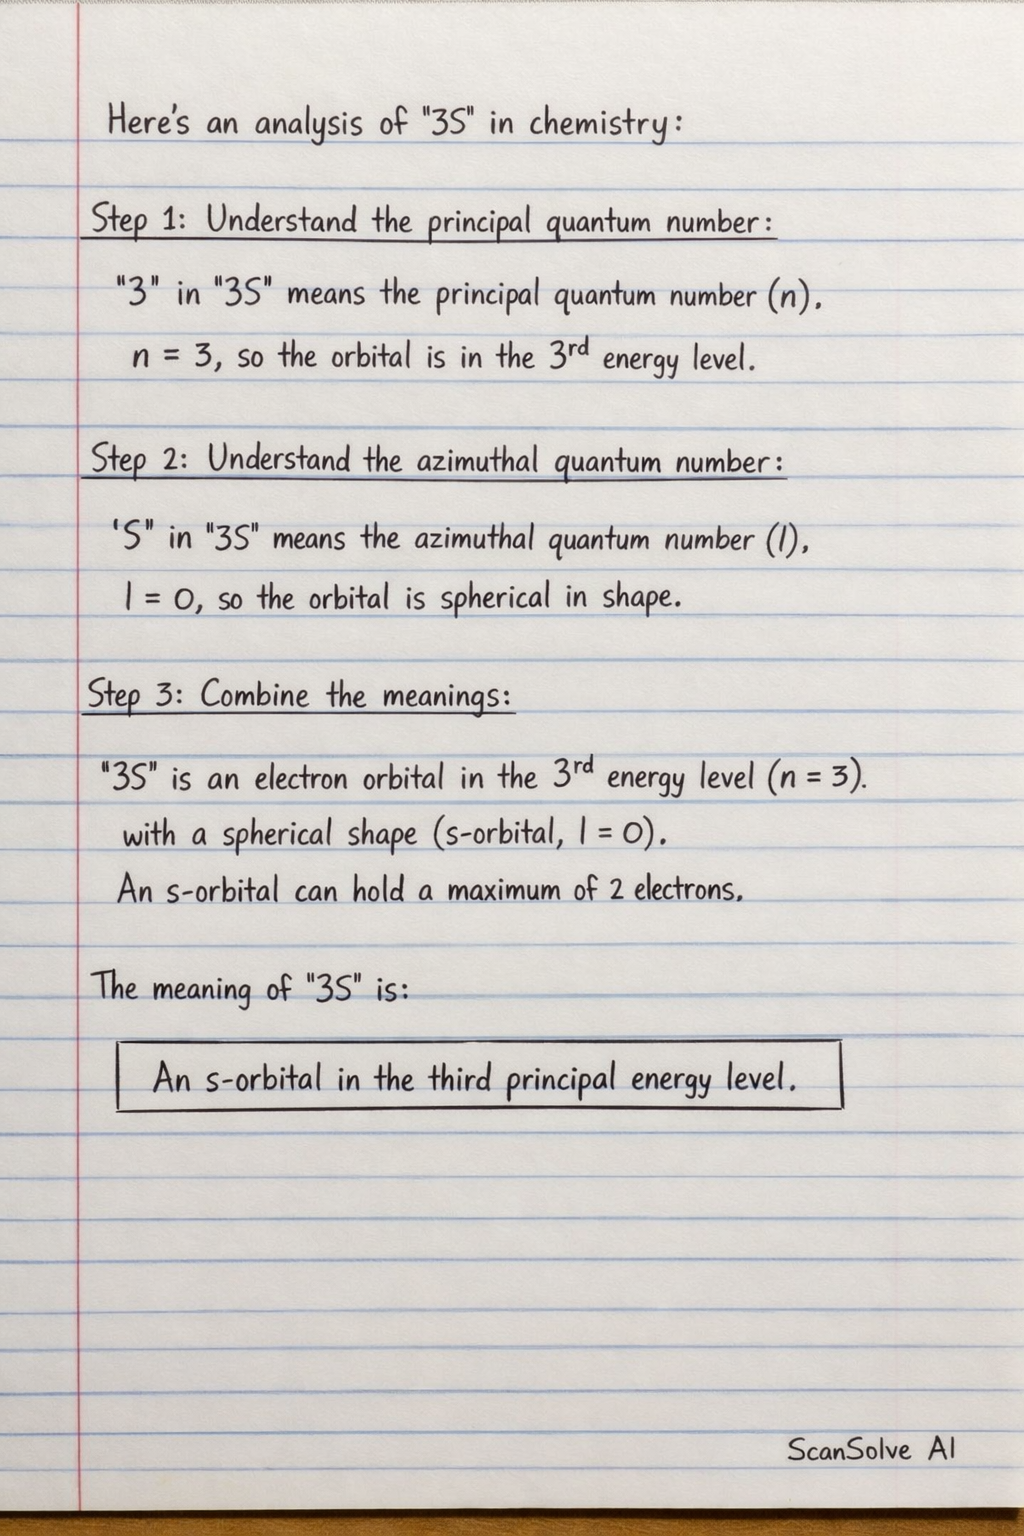 Here's an analysis of "3S" in chemistry:
Step 1: Understand the principal quantum number:
"3" in "3S" means the principal quantum number (n).
n = 3, so the orbital is in the 3rd energy level.
Step 2: Understand the azimuthal quantum number:
'S" in "3S" means the azimuthal quantum number (l),
l = 0, so the orbital is spherical in shape.
Step 3: Combine the meanings:
"3S" is an electron orbital in the 3rd energy level (n = 3).
with a spherical shape (s-orbital, l = 0).
An s-orbital can hold a maximum of 2 electrons.
The meaning of "3S" is:
An s-orbital in the third principal energy level.
ScanSolve AI